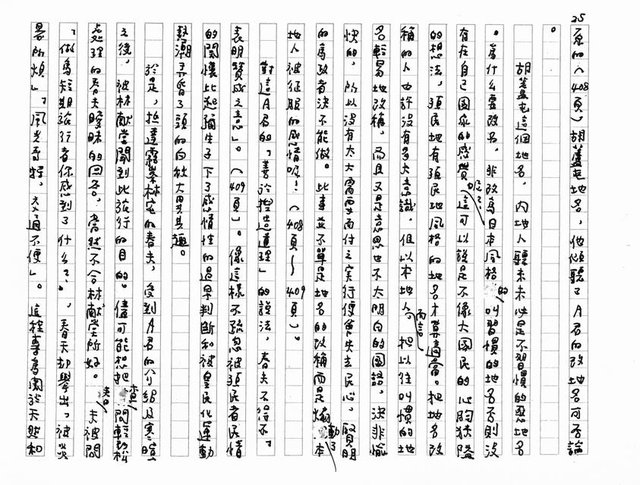 25
屯的(408頁)胡蘆屯地名,他傾聽了A君的改地名可否論
。
胡蘆屯這個地名,內地人聽來未必是不習慣的惡地名
。為什么要改名,非改為日本風格的叫習慣的地名否則沒
有在自己國家的感覺,這可以說是不像大國民的心胸狹隘
的想法,殖民地有殖民地風格的地名才算適當。把地名改
稱的人也許沒有多大意識,但以本地人而言,把以往叫慣的地
名輕易地改稱,而且又是意思也不大明白的國語,決非愉
快的,所以沒有太大需要而付之實行便會失去民心,賢明
的為政者決不能做。此事並不單是地名的改稱而是煽動了本
地人被征服的感情吸!(408頁~409頁)。
對這A君的「善於捏造道理」的說法,春夫不得不「
表明贊成之意」。(409頁)。像這樣不務忽被殖民者民情
的關懷比起彌生子下了感情性的過早判斷和被皇民化運動
熱潮弄昏了頭的白秋大異其趣。
於是,抵達霧峯林家的春夫,受到A君的介紹及寒暄
之後,被林獻堂問到此旅行的目的。儘可能想把查問輕鬆
處理的春夫曖昧的回答,當然不合林獻堂所好。春夫被問
「做為短期旅行者你感到了什么?」,春夫卻舉出「被炎
暑所煩」、「風光奇特,交通不便」。這種專為關於天然和